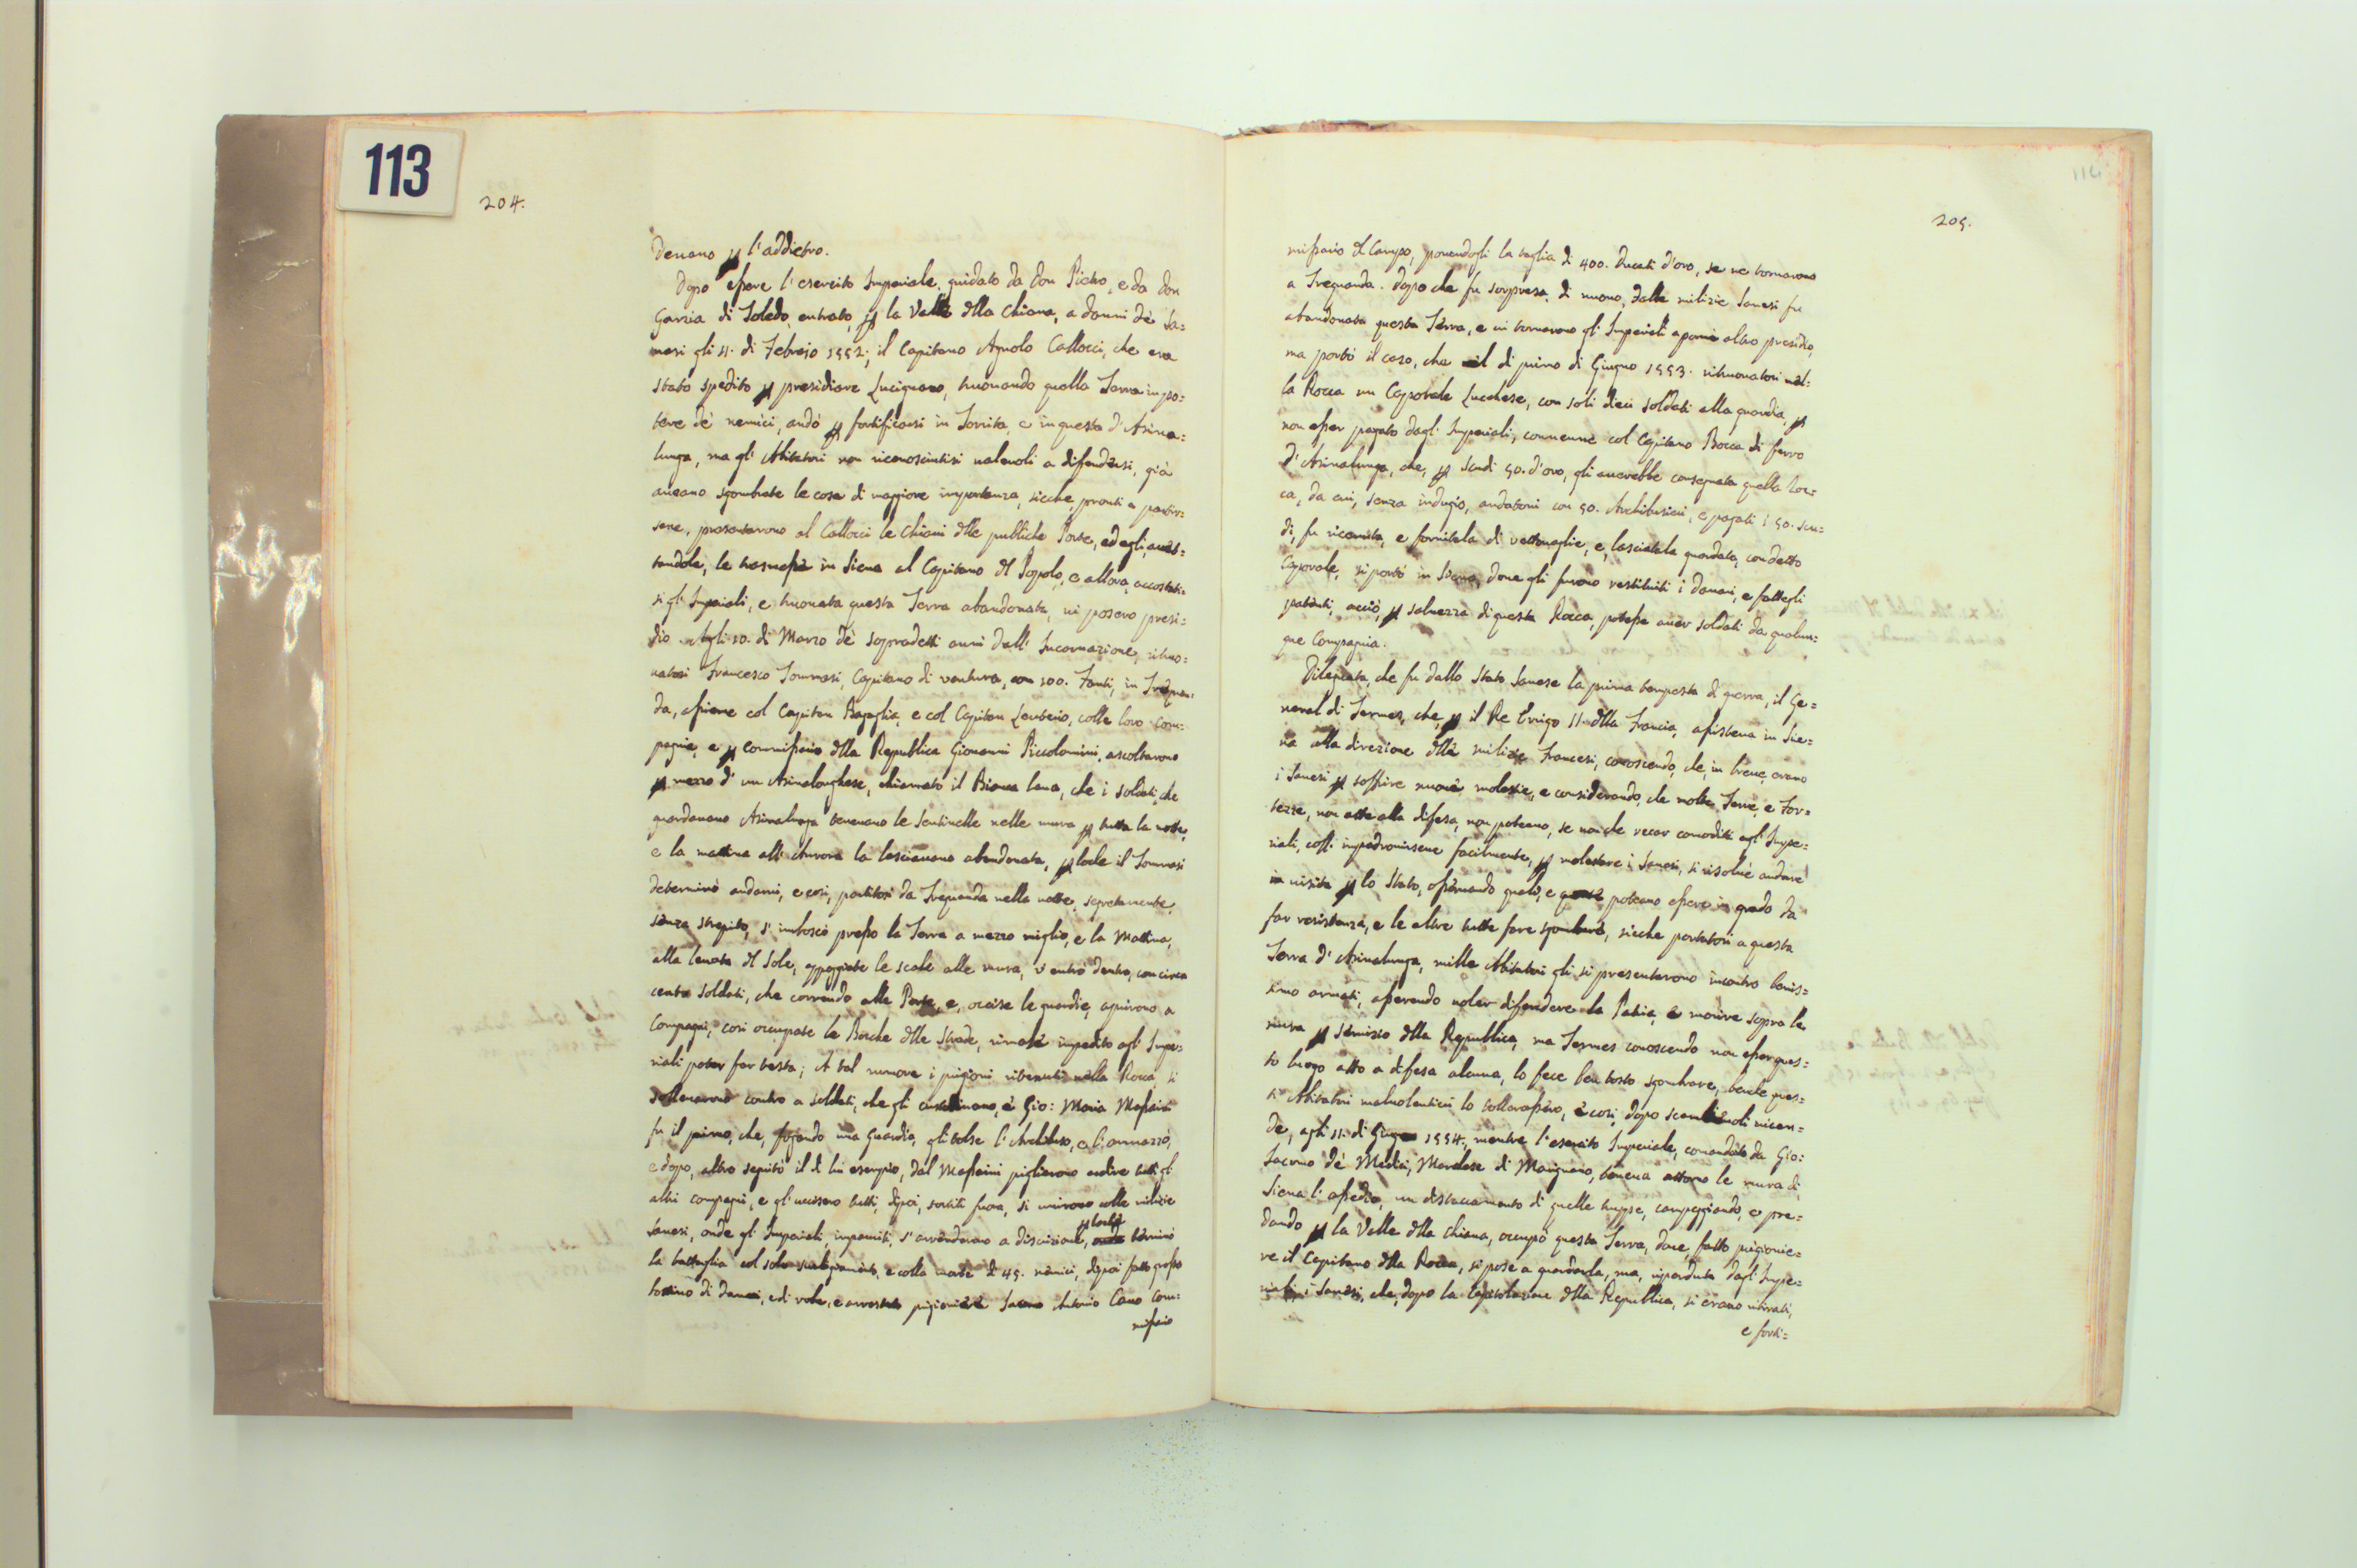 113
204.
devano p l'addietro.
Dopo essere l'esercito Imperiale, guidato da Don Pietro, e da Don
Garzia di Toledo, entrato, p la Valle dlla Chiana, a danni de' Sa=
nesi gli 11. di Febrajo 1552; il Capitano Agnolo Cattocci, che era
stato spedito p presidiare Lucignano, truovando quella Terra in po=
tere de' nemici, andò p fortificarsi in Torrita, e in questa d'Asina=
lunga, ma gl' Abitatori non riconosciutisi valevoli a difendersi, già
aveano sgombrate le cose di maggiore importanza, sicche, pronti a partir=
sene, presentarono al Cattocci le Chiavi dlle publiche Porte, ed egli, acces=
tandole, le trasmesse in Siena al Capitano dl Popolo, e allora, accostati=
si gl' Imperiali, e truovata questa Terra abandonata, vi posero presi=
dio. Agli 10. di Marzo de' sopradetti anni dall' Incarnazione, ritruo=
vatosi Francesco Tommasi, Capitano di ventura, con 100. Fanti, in Trequan=
da, assieme col Capitan Bagaglia, e col Capitan Leuterio, colle loro Com=
pagnie, e p Commissario dlla Republica Giovanni Piccolomini, ascoltarono
p mezzo d' un Asinalonghese, chiamato il Bianca lana, che i soldati, che
guardavano Asinalunga tenevano le sentinelle nelle mura p tutta la notte,
e la mattina all' Aurora la lasciavano abandonata, p loche il Tommasi
determinò andarvi, e così, partitosi da Trequanda nella notte, segretamente,
senza strepito, s' imboscò presso la Terra a mezzo miglio, e la Mattina,
alla levata dl Sole, appoggiate le scale alle mura, v' entrò dentro, con circa
cento soldati, che correndo alle Porte, e, occise le guardie, aprirono a
Compagni, così occupate le Bocche dlle Strade, rimase impedito agl' Impe=
riali poter far testa; A tal rumore i prigioni ritenuti nella Rocca, si
sollevarono contro a soldati, che gli custodivano, e Gio: Maria Massaini
fu il primo, che, sforzando una Guardia, gli tolse l' Archibuso, e l' ammazzò,
e dopo, altro seguitò il di lui esempio, dal Massaini pigliarono ardire tutti gl'
altri compagni, e gl' uccisero tutti, dipoi, sortiti fuora, si unirono colle milizie
Sanesi, onde gl' Imperiali, impauriti, s' arrenderono a discrizione, p loche terminò
la battaglia col solo svaligiamento, e colla morte di 45. nemici, dipoi fatto grosso
bottino di danari, e di robe, e arrestato prigioniere Iacomo Antonio Cano Com=
missario
114
205.
missario dl Campo, ponendogli la taglia di 400. Ducati d'oro, se ne tornarono
a Trequanda. Dopo che fu sorpresa, di nuovo, dalle milizie Sanesi fu
abandonata questa Terra, e vi tornarono gl' Imperiali a porvi altro presidio,
ma portò il caso, che il dì primo di Giugno 1553. ritruovatosi nel=
la Rocca un Caporale Lucchese, con soli dieci soldati alla guardia, p
non esser pagato dagl' Imperiali, convenne col Capitano Bocca di ferro
d' Asinalunga, che, p Scudi 50. d'oro, gli averebbe consegnata quella Roc=
ca, da cui, senza indugio, andatovi con 50. Archibusieri, e pagati i 50. Scu=
di, fu ricevuta, e fornitela di vettovaglie, e lasciatala guardata, con detto
Caporale, si portò in Siena, dove gli furono restituiti i danari, e fattegli
patenti, acciò, p salvezza di questa Rocca, potesse aver soldati da qualun=
que Compagnia.
Dileguata, che fu dallo Stato Sanese la prima tempesta di guerra, il Ge=
neral di Termes, che p il Re Errigo II. dlla Francia, assisteva in Sie=
na alla direzione dlle milizie Francesi, conoscendo, che, in breve, erano
i Sanesi p soffrire nuove molestie, e considerando, che molte Terre, e For=
tezze, non atte alla difesa, non poteano, se non che recar comoditi agl' Impe=
riali, coll' impadronirsene facilmente, p molestare i Sanesi, si risolvè andare
in visita p lo Stato, osservando quali, e quante poteano essere in grado da
far resistenza, e le altre tutte fare sgombrare, sicche portatosi a questa
Terra d' Asinalunga, mille Abitatori gli si presentarono incontro benis=
simo armati, asserendo voler difendere la Patria, e morire sopra le
mura p servizio dlla Republica, ma Termes conoscendo non esser ques=
to luogo atto a difesa alcuna, lo fece ben tosto sgombrare, benche ques=
ti Abitatori malvolentieri lo tollerassero, e così, dopo scambievoli vicen=
de, agli 11. di Giugno 1554., mentre l' esercito Imperiale, comandato da Gio:
Iacomo de' Medici, Marchese di Marignano, teneva attorno le mura di
Siena l' assedio, un distaccamento di quelle truppe, campeggiando, e pre=
dando p la Valle dlla Chiana, occupò questa Terra, dove, fatto prigionie=
re il Capitano dlla Rocca, si pose a guardarla, ma, riperduta dagl' Impe=
riali, i Sanesi, che, dopo la Capitolazione dlla Republica, si erano ritirati,
e forti=